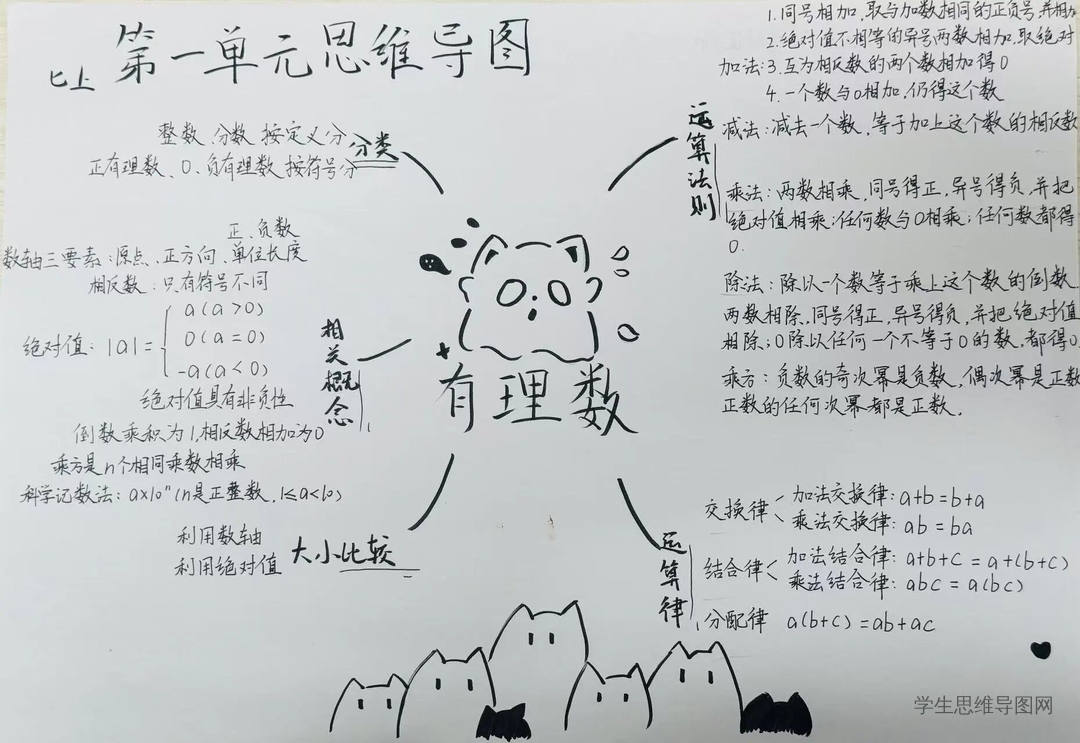 七上 第一单元思维导图
整数、分数 按定义分
分类
正有理数、0、负有理数 按符号分
正、负数
数轴三要素：原点、正方向、单位长度
相反数：只有符号不同
绝对值：|a|=
a(a>0)
0(a=0)
-a(a<0)
绝对值具有非负性
倒数乘积为1,相反数相加为0
乘方是n个相同乘数相乘
科学记数法：a×10ⁿ(n是正整数,1≤a<10)
相关概念
利用数轴
利用绝对值
大小比较
有理数
运算法则
1.同号相加,取与加数相同的正负号,并相加
2.绝对值不相等的异号两数相加,取绝对
加法:3.互为相反数的两个数相加得0
4.一个数与0相加,仍得这个数
减法:减去一个数,等于加上这个数的相反数
乘法:两数相乘,同号得正,异号得负,并把
绝对值相乘;任何数与0相乘;任何数都得
0.
除法:除以一个数等于乘上这个数的倒数
两数相除,同号得正,异号得负,并把绝对值
相除;0除以任何一个不等于0的数,都得0
乘方:负数的奇次幂是负数,偶次幂是正数
正数的任何次幂都是正数.
运算律
交换律
加法交换律:a+b=b+a
乘法交换律:ab=ba
结合律
加法结合律:a+b+c=a+(b+c)
乘法结合律:abc=a(bc)
分配律 a(b+c)=ab+ac
学生思维导图网